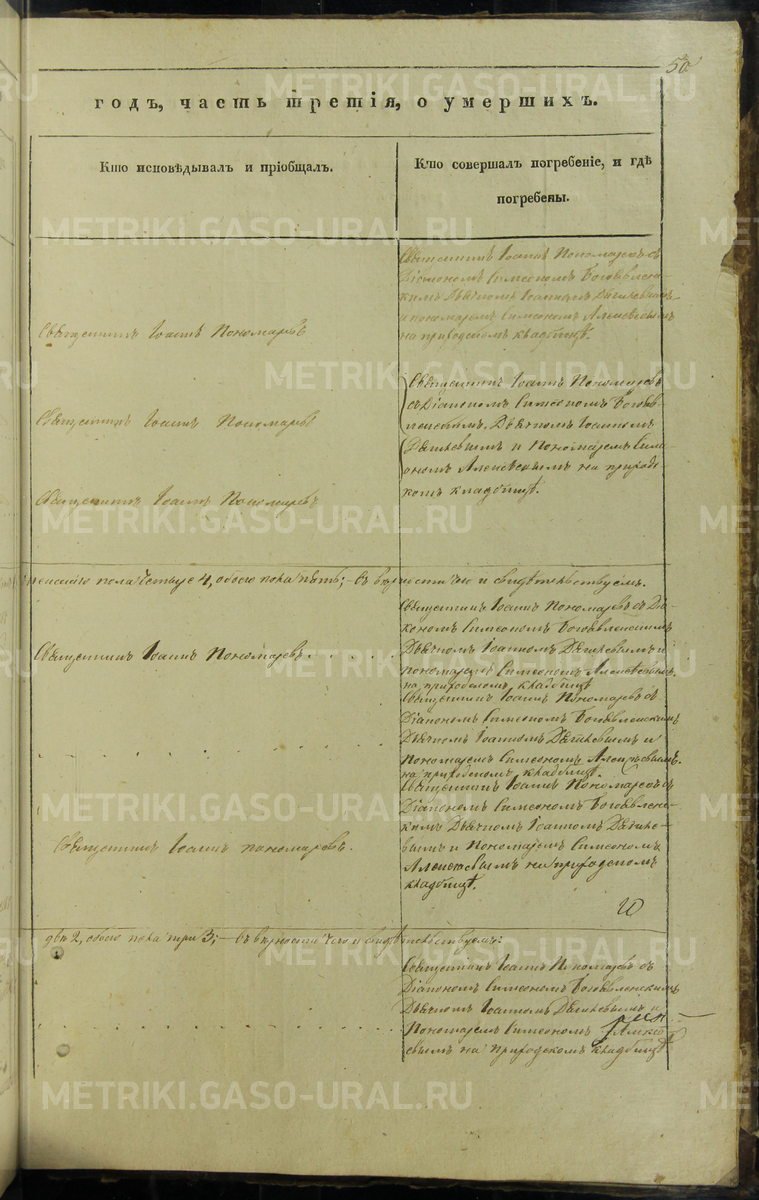 50
годъ, часть третія, о умершихъ.
Кто исповѣдывалъ и пріобщалъ.
Кто совершалъ погребеніе, и гдѣ
погребены.
Священникъ Іоаннъ Пономаревъ съ
Діакономъ Симеономъ Богоявленс-
кимъ Дьячкомъ Іоанномъ
и пономаремъ Симеономъ Алексѣевымъ
на приходскомъ кладбищѣ.
Священникъ Іоаннъ Пономаревъ
Священникъ Іоаннъ Пономаревъ
съ Діакономъ Симеономъ Богояв-
ленскимъ, Дьячкомъ Іоанномъ
и Пономаремъ Симе-
ономъ Алексѣевымъ на приходс-
комъ кладбищѣ.
Священникъ Іоаннъ Пономаревъ
Священникъ Іоаннъ Пономаревъ
женскаго пола 4, обоего пола пять; – въ вѣрности сего и свидѣтельствуемъ.
Священникъ Іоаннъ Пономаревъ съ Діа-
кономъ Симеономъ Богоявленскимъ
Дьячкомъ Іоанномъ и
пономаремъ Симеономъ Алексѣевымъ
на приходскомъ кладбищѣ
Священникъ Іоаннъ Пономаревъ
Священникъ Іоаннъ Пономаревъ съ
Діакономъ Симеономъ Богоявленскимъ
Дьячкомъ Іоанномъ и
Пономаремъ Симеономъ Алексѣевымъ
на приходскомъ кладбищѣ.
Священникъ Іоаннъ Пономаревъ съ
Діакономъ Симеономъ Богоявленс-
кимъ Дьячкомъ Іоанномъ
и Пономаремъ Симеономъ
Алексѣевымъ на приходскомъ
кладбищѣ.
Священникъ Іоаннъ пономаревъ.
два 2, обоего пола три 3; – въ вѣрности сего и свидѣтельствуемъ:
Священникъ Іоаннъ Пономаревъ съ
Діакономъ Симеономъ Богоявленскимъ
Дьячкомъ Іоанномъ и
Пономаремъ Симеономъ Алексѣ-
евымъ на приходскомъ кладбищѣ
METRIKI.GASO-URAL.RU